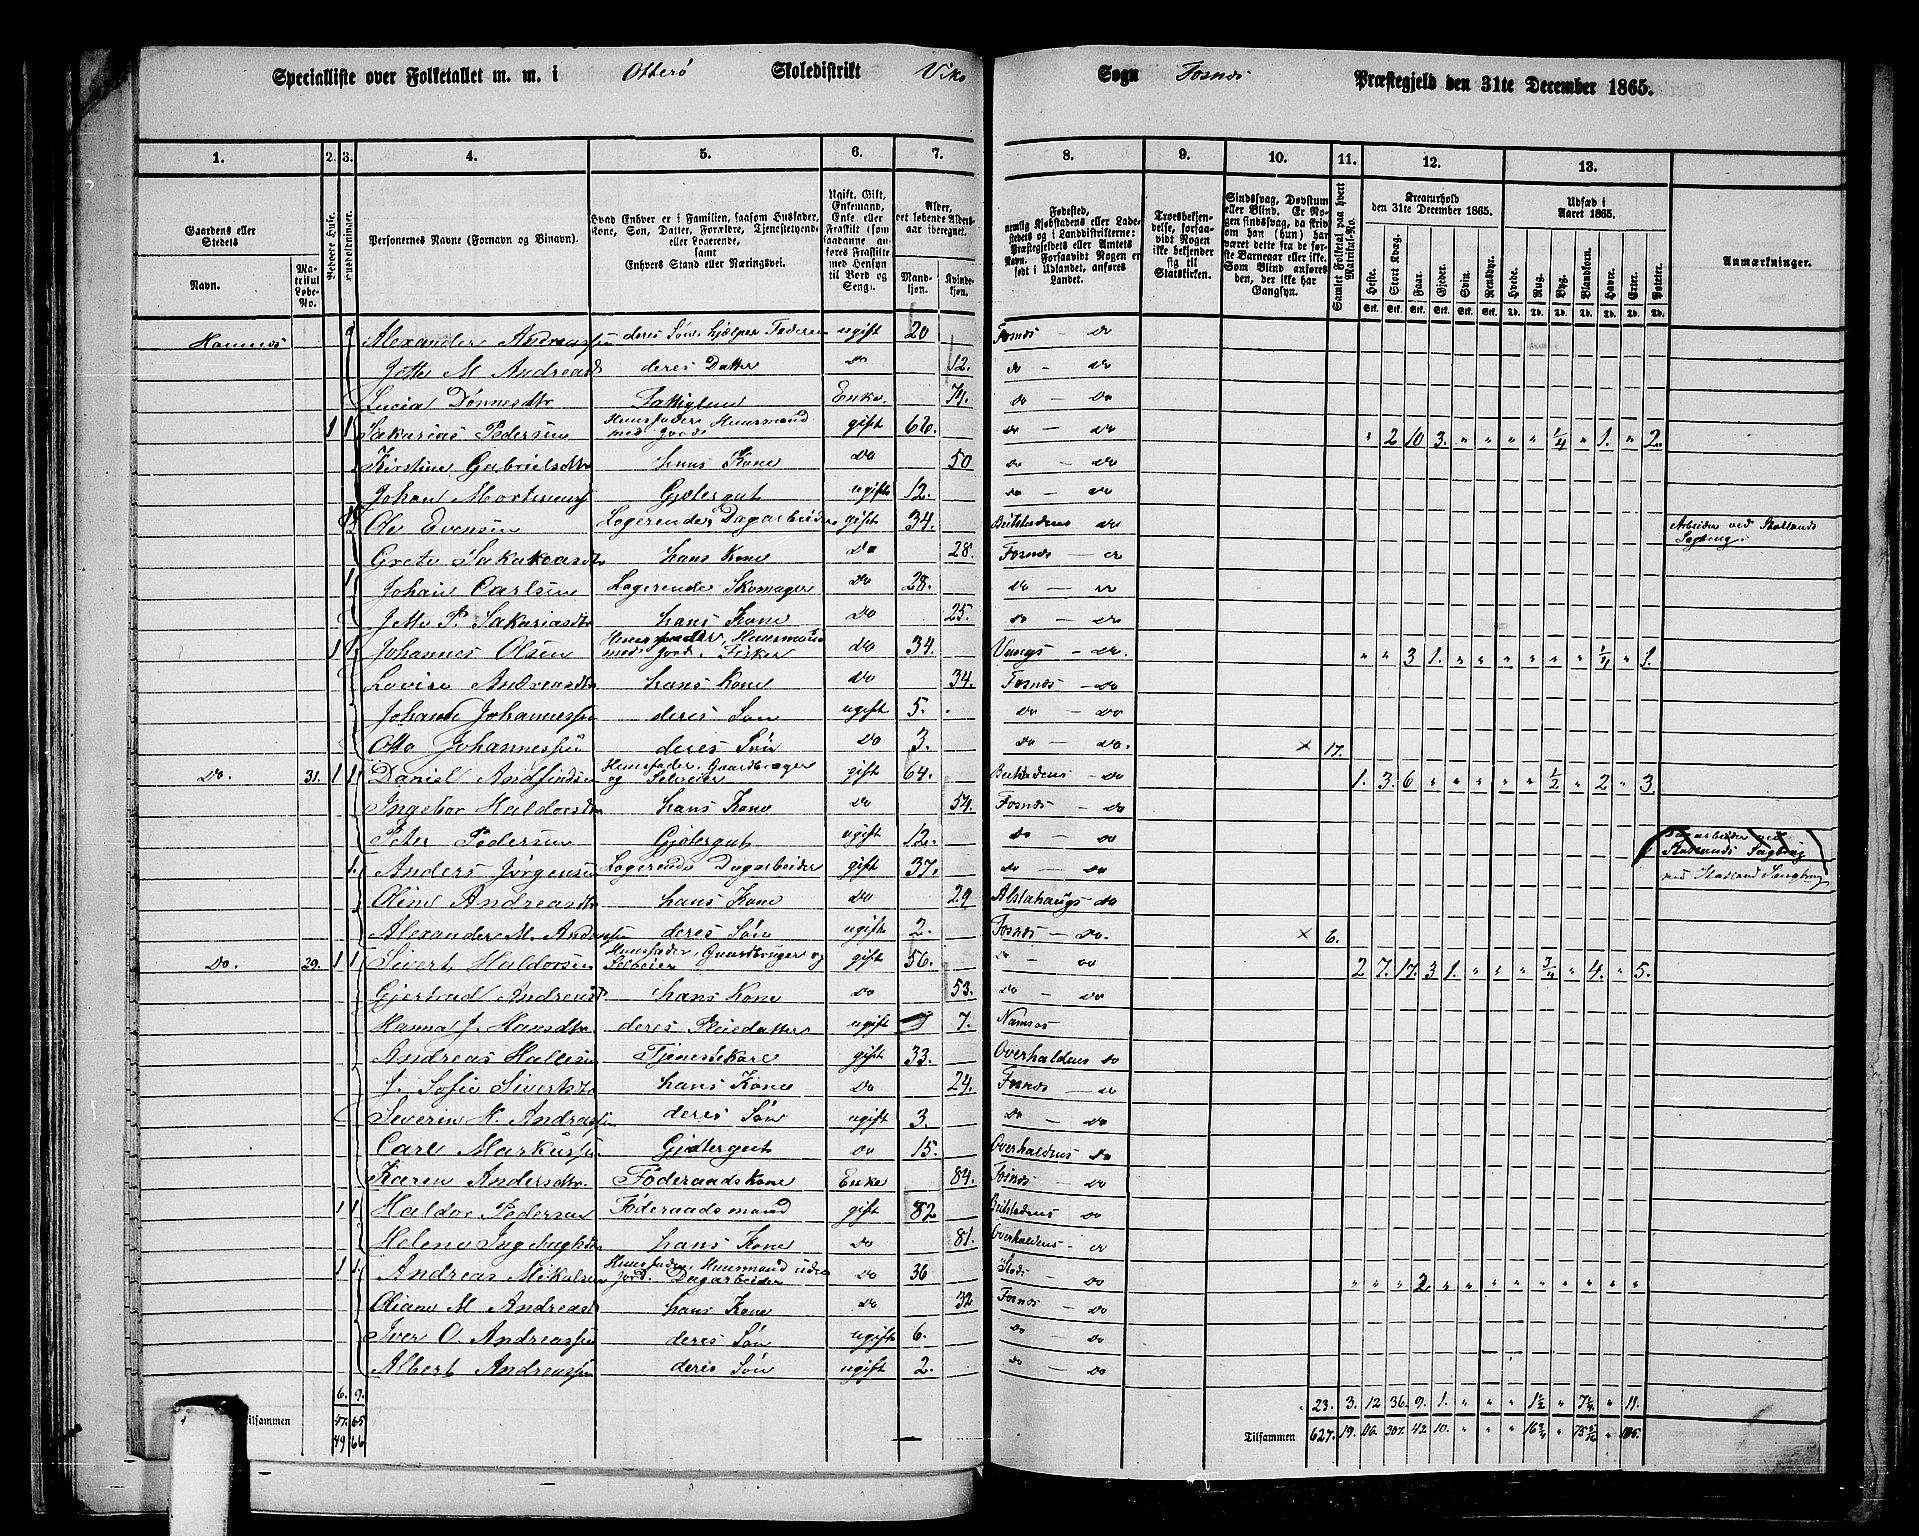 Specialliste over Folketallet m. m. i Otterø Skoledistrikt Viks Sogn Fosnæs Præstegjeld den 31te December 1865.
1. 2. 3. 4. 5. 6. 7. 8. 9. 10. 11. 12. 13.
Gaardens eller Stedets
Navn.
Matrikul Løbe-No.
Beboede Huse.
Huusholdninger.
Personernes Navne (Fornavn og Binavn).
Hvad Enhver er i Familien, saasom Husfader, Kone, Søn, Datter, Forældre, Tjenestetyende eller Logerende, samt Enhvers Stand eller Næringsvei.
Ugift, Gift, Enkemand, Enke eller Fraskilt (som saadanne anføres Fraskilte med Hensyn til Bord og Seng).
Alder, det løbende Aldersaar iberegnet.
Mandkjøn. Kvindekjøn.
Fødested, nemlig Kjøbstadens eller Ladestedets og i Landdistrikterne: Præstegjeldets eller Amtets Navn. Forsaavidt Nogen er født i Udlandet, anføres Landet.
Troesbekjendelse, forsaavidt Nogen ikke bekjender sig til Statskirken.
Sindssvag, Døvstum eller Blind. Er Nogen sindssvag, da skriv om han (hun) har været dette fra de første Barneaar eller ikke. Som Blind anføres den, der ikke har Gangsyn.
Samlet Folketal paa hvert Matrikul-No.
Kreaturhold den 31te December 1865.
Heste. Stort Kvæg. Faar. Gjeder. Svin. Rensdyr.
Udsæd i Aaret 1865.
Hvede. Rug. Byg. Blandkorn. Havre. Erter. Poteter.
Anmærkninger.
Alexander Andreassen deres Søn, hjælper Faderen ugift 20 Fosnæs do
Jette M. Andreasd deres Datter do 12. do - do
Lucia Dønnesdtr Enke. 74. do - do
1 1 Sakarias Pedersen Huusfader Huusmand med Jord gift 62. do - do " 2 10 3. " " " " 1/4 " 1. " 2.
Kirstine Gabrielsdtr hans Kone do 50 do - do
Johan Gjetergut ugift 12. do - do
Ole Evensen Logerende, Dagarbeider gift 34. Beitstadens do Arbeider ved Sagbrug.
Grete Sakariasdtr hans Kone do 28. Fosnæs - do
1 Johan Carlsen Logerende Skomager do 28. do - do
Jette P. Sakariasdtr hans Kone do 25. do - do
1 1 Johannes Olsen Huusfader, Huusmand med Jord. Fisker do 34. do. " " 3 1. " " " " " " 1/4 " 1.
Lovise Andreasdtr hans Kone do 34. Fosnæs - do
Johan Johannessen deres Søn ugift 5. do - do
Otto Johannessen deres Søn do 3. do - do. × 17.
do. 31. 1 1 Daniel Andfindsen Huusfader, Gaardbruger og Selveier gift 64. Beitstadens - do 1. 3. 6 " " " " " 1/2 " 2 " 3.
Ingebor Haldorsdtr hans Kone do 54. Fosnæs - do
Peter Pedersen Gjetergut ugift 12. do - do
1. Anders Jørgensen Logerende Dagarbeider gift 37. do - do
Oline Andreasdtr hans Kone do 29 Alstahaugs do
Alexander M. Andersen deres Søn ugift 2. Fosnæs - do. × 6.
do. 29. 1 1 Sivert Haldorsen Huusfader, Gaardbruger og Selveier gift 56. do - do 2 7. 17. 3 1. " " " 3/4 " 4. " 5.
Gjertrud Andreasd hans Kone do 53. do - do
Hanna J. Hansdtr deres Pleiedatter ugift 7. Namsos
Andreas Hallesen Tjenestekarl gift 33. Overhaldens do
J. Sofie Sivertsdtr hans Kone do 24. Fosnæs - do
Severin N. Andreassen deres Søn ugift 3. do - do
Carl Markussen Gjetergut do 15. Overhaldens do
Karen Andersdtr. Føderaadskone Enke 84. Fosnæs - do
1 1 Haldor Pedersen Føderaadsmand gift 82 Beitstadens do
Helena hans Kone do 81. Overhaldens - do
1 1 Andreas Mikalsen Huusfader, Huusmand uden Jord. Dagarbeider do 36 Stods - do " " " 2 " " " " " " " " "
Oliane M. Andreasd hans Kone do 32 Fosnæs - do
Iver O. Andreassen deres Søn ugift 6. do - do
Albert Andreassen deres Søn ugift 2. do - do
6. 9. 23. 3. 12 36. 9. 1. " " " 1 1/2 " " 11.
Tilsammen 47. 65 Tilsammen 627. 19. 307. 42 10. " "
49 66